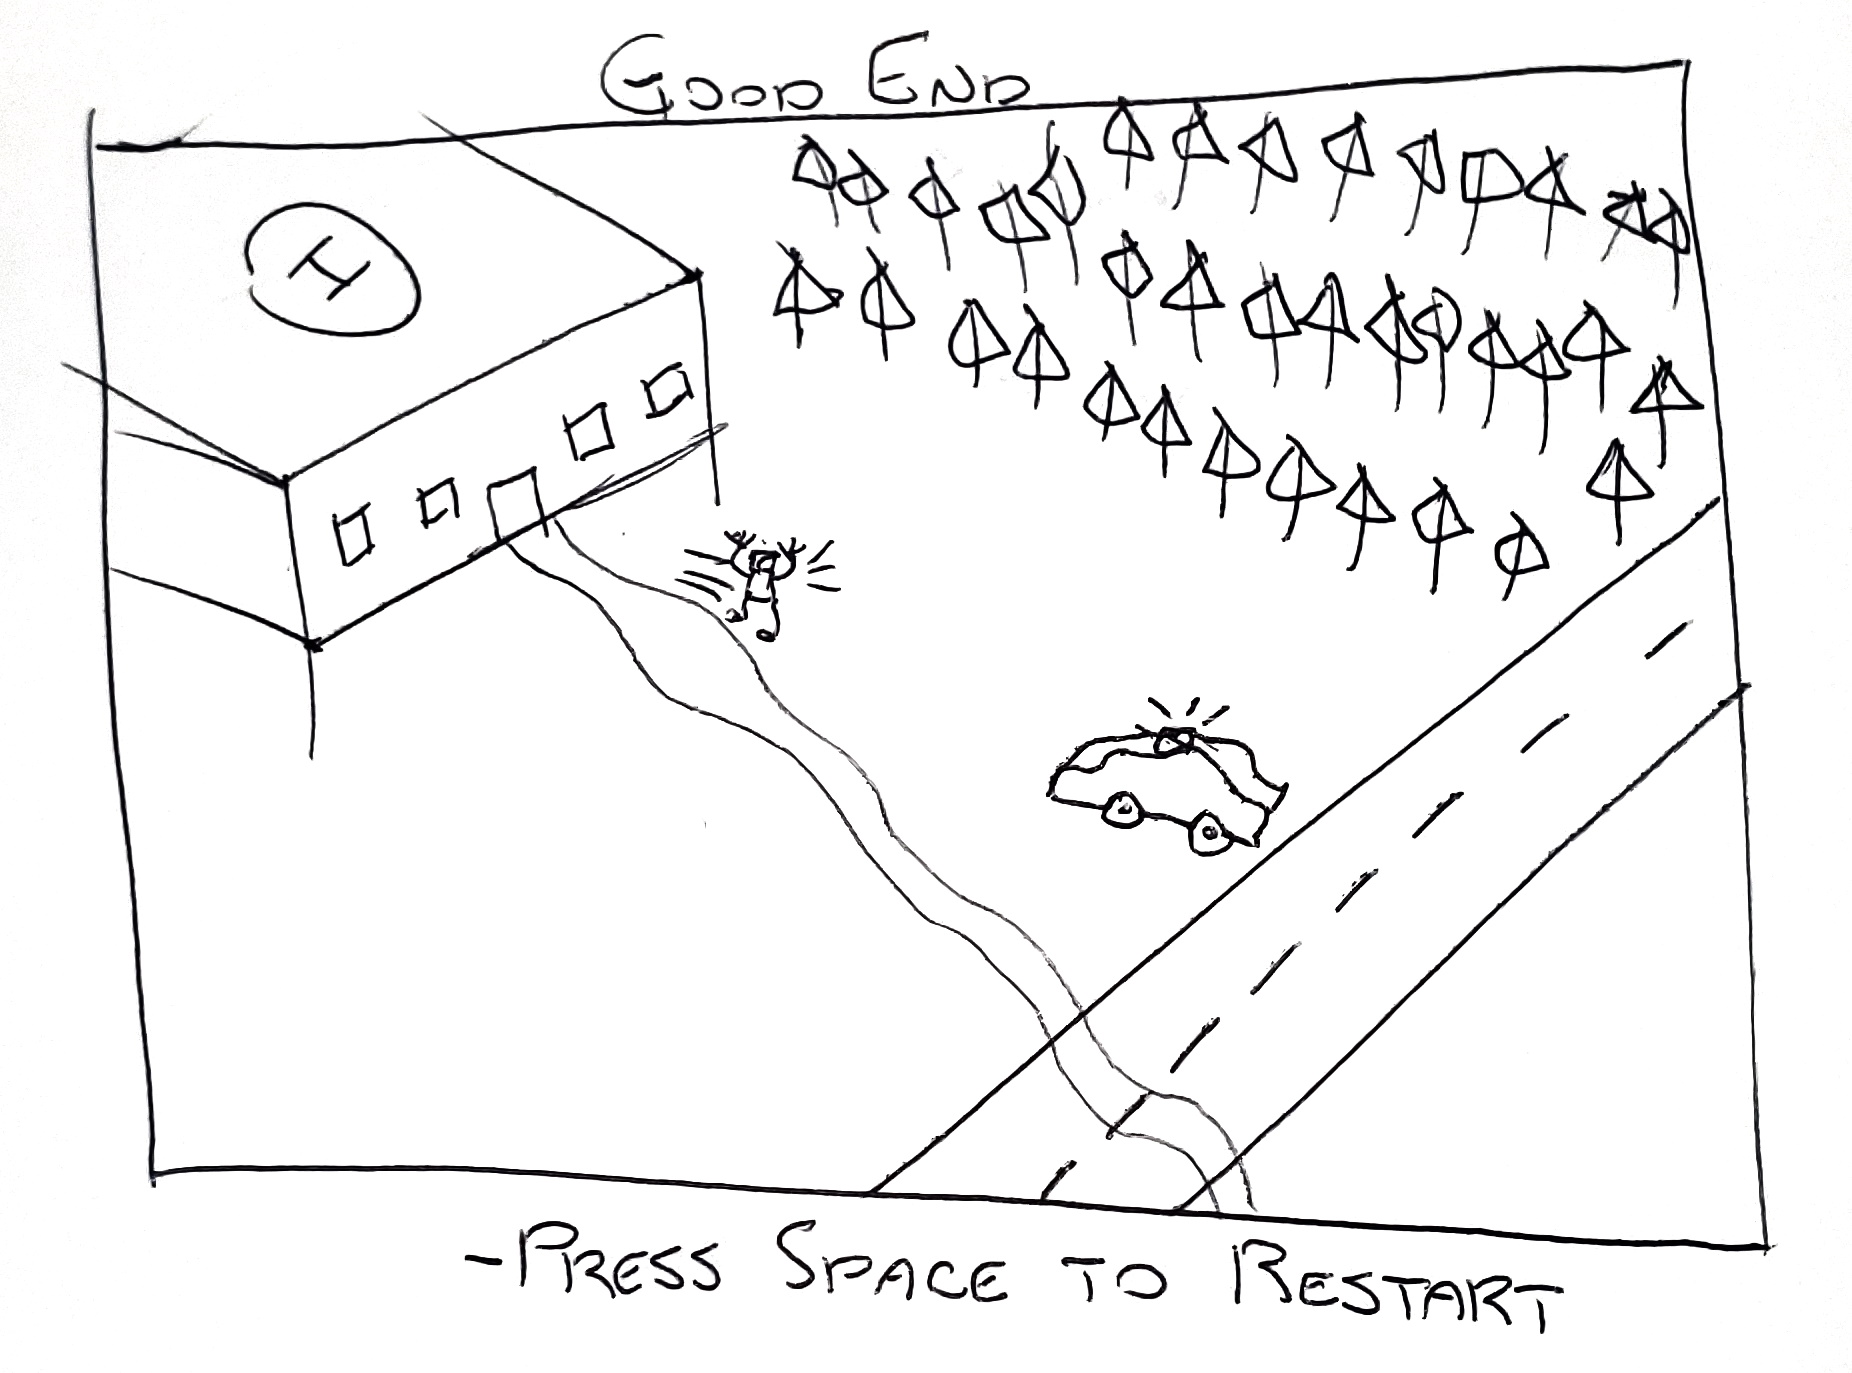 GOOD END
H
-PRESS SPACE TO RESTART